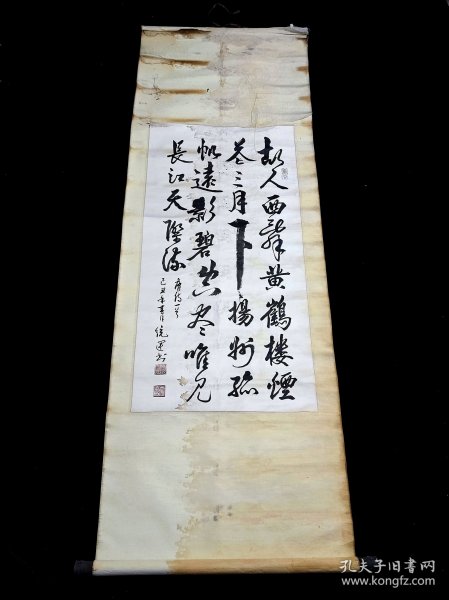 故人西辞黄鶴楼煙
花三月下揚州孤
帆遠影碧空尽唯見
長江天際流
唐詩一首
己丑年
書
孔夫子旧书网
www.kongfz.com